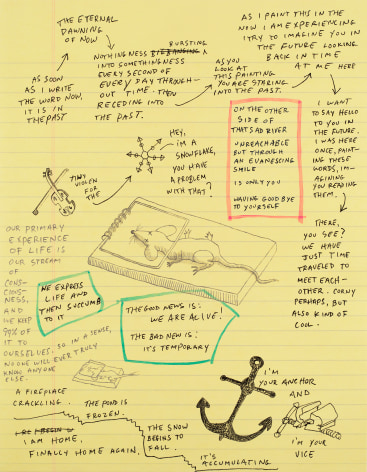 THE ETERNAL
DAWNING
OF NOW
AS SOON
AS I WRITE
THE WORD NOW,
IT IS IN
THE PAST
BURSTING
NOTHINGNESS
INTO SOMETHINGNESS
EVERY SECOND OF
EVERY DAY THROUGH-
OUT TIME. THEN
RECEDING INTO
THE PAST.
AS YOU
LOOK AT
THIS PAINTING
YOU ARE STARING
INTO THE PAST.
AS I PAINT THIS IN THE
NOW I AM EXPERIENCING
I TRY TO IMAGINE YOU IN
THE FUTURE LOOKING
BACK IN TIME
AT ME HERE
I WANT
TO SAY HELLO
TO YOU IN
THE FUTURE.
I WAS HERE
ONCE, PAINT-
ING THESE
WORDS, IM-
AGINING
YOU READING
THEM.
THERE,
YOU SEE?
WE HAVE
JUST TIME
TRAVELED TO
MEET EACH-
OTHER. CORNY
PERHAPS, BUT
ALSO KIND OF
COOL.
ON THE OTHER
SIDE OF
THAT SAD RIVER
UNREACHABLE
BUT THROUGH
AN EVANESCING
SMILE
IS ONLY YOU
WAVING GOODBYE
TO YOURSELF
HEY,
I'M A
SNOWFLAKE,
YOU HAVE
A PROBLEM
WITH THAT?
TINY
VIOLEN
FOR THE
OUR PRIMARY
EXPERIENCE
OF LIFE IS
OUR STREAM
OF
CONS-
CIOUS-
NESS,
AND
WE KEEP
99% OF
IT TO
OURSELVES. SO, IN A SENSE,
NO ONE WILL EVER TRULY
KNOW ANYONE
ELSE.
WE EXPRESS
LIFE AND
THEN SUCCUMB
TO IT
THE GOOD NEWS IS:
WE ARE ALIVE!
THE BAD NEW IS:
IT'S TEMPORARY
A FIREPLACE
CRACKLING.
THE POND IS
FROZEN.
I AM HOME,
FINALLY HOME AGAIN,
THE SNOW
BEGINS TO
FALL.
IT'S
ACCUMULATING.
I'M
YOUR ANCHOR
AND
I'M YOUR
VICE